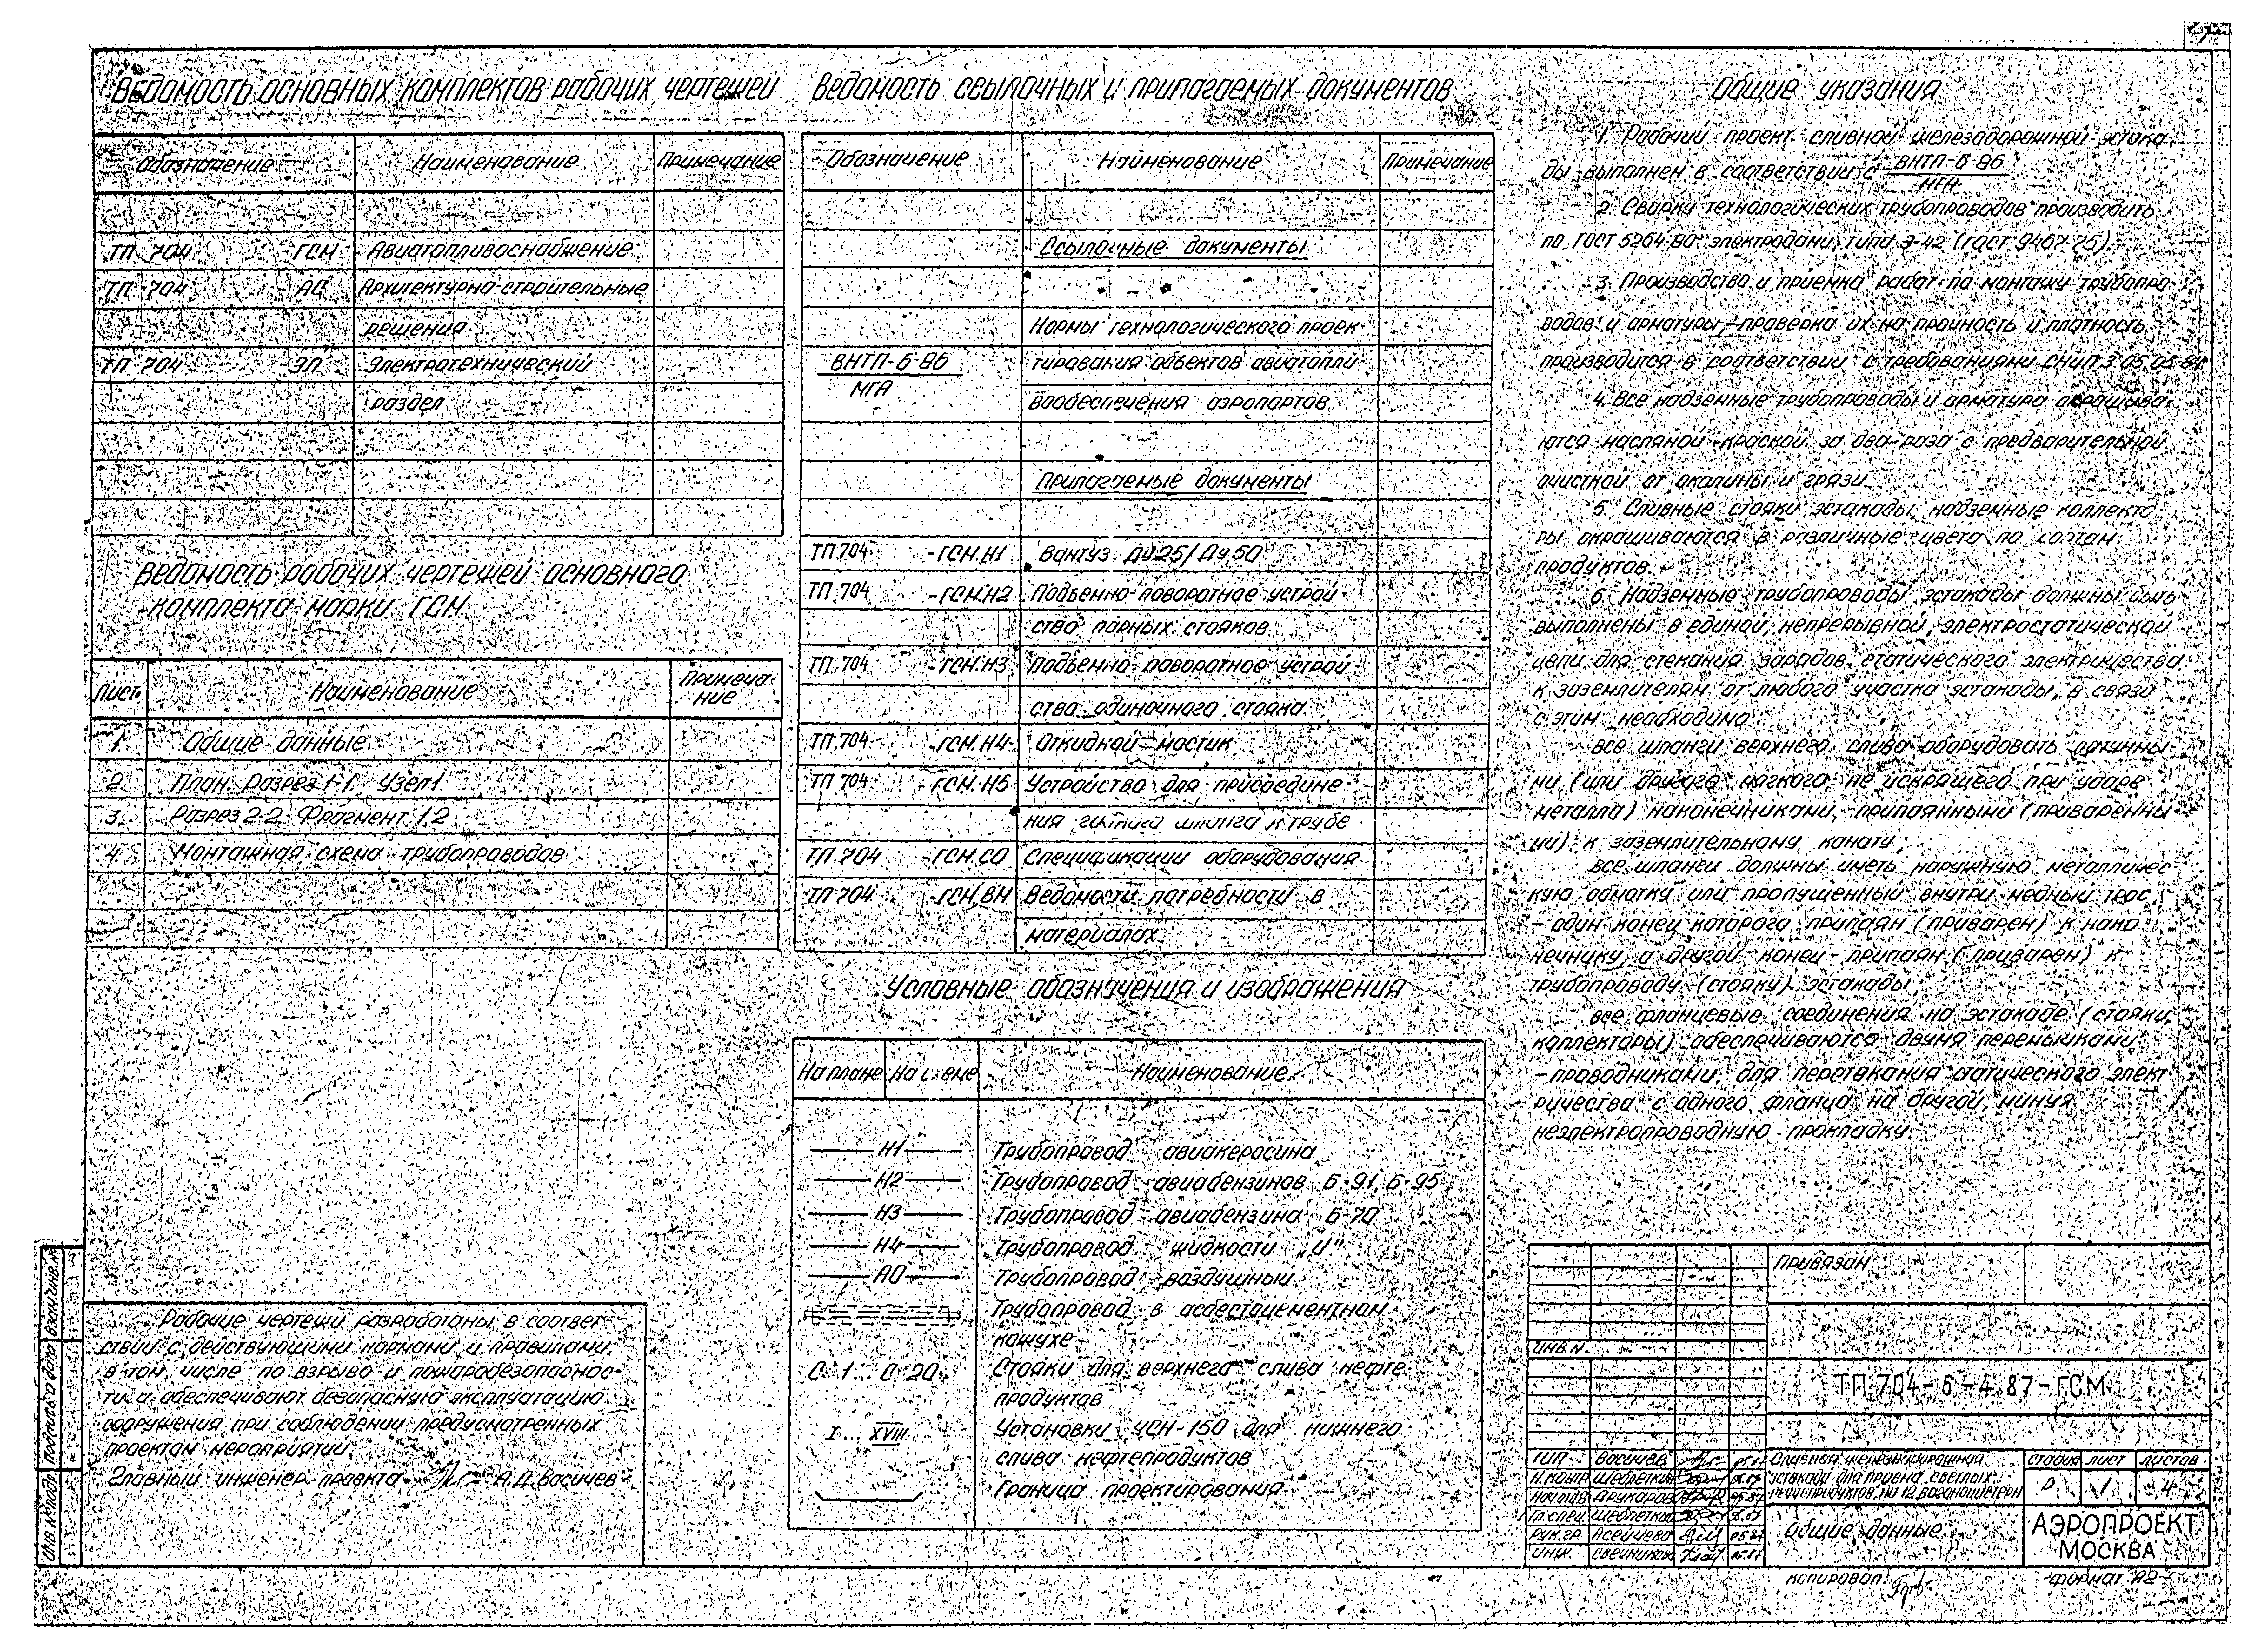 Ведомость основных комплектов рабочих чертежей
Обозначение Наименование Примечание
ТП 704 ГСМ Авиатопливоснабжение
ТП 704 АС Архитектурно-строительные
решения
ТП 704 ЭЛ Электротехнический
раздел
Ведомость рабочих чертежей основного
комплекта марки ГСМ
Лист Наименование Примеча-
ние
1 Общие данные
2 План. Разрез 1-1. Узел 1
3 Разрез 2-2. Фрагмент 1,2
4 Монтажная схема трубопроводов
Рабочие чертежи разработаны в соответ-
ствии с действующими нормами и правилами,
в том числе по взрыво и пожаробезопаснос-
ти и обеспечивают безопасную эксплуатацию
сооружения при соблюдении предусмотренных
проектом мероприятий
Главный инженер проекта А.Д. Васичев
Ведомость ссылочных и прилагаемых документов
Обозначение Наименование Примечание
Ссылочные документы
Нормы технологического проек-
ВНТП-6-86 тирования объектов авиатопли-
МГА вообеспечения аэропортов
Прилагаемые документы
ТП 704 -ГСМ.Н1 Вантуз Ду25/Ду50
ТП 704 -ГСМ.Н2 Подьемно-поворотное устрой-
ство парных стояков
ТП 704 -ГСМ.Н3 Подьемно-поворотное устрой-
ство одиночного стояка
ТП 704 -ГСМ.Н4 Откидной мостик
ТП 704 -ГСМ.Н5 Устройство для присоедине-
ния гибкого шланга к трубе
ТП 704 -ГСМ.СО Спецификации оборудования
ТП 704 -ГСМ.ВМ Ведомости потребности в
материалах
Условные обозначения и изображения
На плане На схеме Наименование
Н1 Трубопровод авиакеросина
Н2 Трубопровод авиабензинов Б-91, Б-95
Н3 Трубопровод авиабензина Б-70
Н4 Трубопровод жидкости „И"
А0 Трубопровод воздушный
Трубопровод в асбестоцементном
кожухе
С 1... С 20 Стояки для верхнего слива нефте-
продуктов
I... XVIII Установки УСН-150 для нижнего
слива нефтепродуктов
Граница проектирования
Общие указания
1. Рабочий проект сливной железодорожной эстака-
ды выполнен в соответствии с ВНТП-6-86
МГА
2. Сварку технологических трубопроводов производить
по ГОСТ 5264-80 электродами типа Э-42 (ГОСТ 9467-75)
3. Производство и приемка работ по монтажу трубопро-
водов и арматуры, проверка их на прочность и плотность
производится в соответствии с требованиями СНиП 3.05.05-84
4. Все надземные трубопроводы и арматура окрашива-
ются масляной краской за два раза с предварительной
очисткой от окалины и грязи.
5. Сливные стояки эстакады, надземные коллекто-
ры окрашиваются в различные цвета по сортам
продуктов.
6. Надземные трубопроводы эстакады должны быть
выполнены в единой, непрерывной, электростатической
цепи для стекания зарядов статического электричества
к заземлителям от любого участка эстакады, в связи
с этим необходимо:
все шланги верхнего слива оборудовать латунны-
ми (или другого мягкого, не искрящего при ударе
металла) наконечниками, припаянными (приваренны-
ми) к заземлительному канату;
все шланги должны иметь наружную металличес-
кую обмотку или пропущенный внутри медный трос,
один конец которого припаян (приварен) к нако-
нечнику, а другой конец припаян (приварен) к
трубопроводу (стояку) эстакады;
все фланцевые соединения на эстакаде (стояки,
коллекторы) обеспечиваются двумя перемычками
-проводниками для перетекания статического элект-
ричества с одного фланца на другой, минуя
неэлектропроводную прокладку.
Привязан
Инв. N
ТП 704-6-4.87-ГСМ
ГИП Васичев
Н.контр Щеблеткин
Нач.отд Друкаров
Гл.спец Щеблеткин
Рук.гр Асеичева
Инж. Свечников
Сливная железнодорожная
эстакада для приема светлых
нефтепродуктов на 12 вагоноцистерн
Стадия Лист Листов
Р 1 4
Общие данные
АЭРОПРОЕКТ
МОСКВА
Копировал
Формат А2
Взам.инв.N
Подпись и дата
Инв.N подл